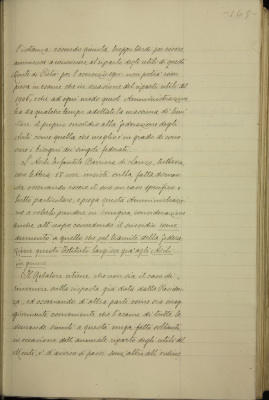 - 165 -
l'istanza essendo giunta troppo tardi per essere
ammessa a concorrere al riparto degli utili di questo
Monte di Pietà per l'esercizio 1905 non potrà com
presa in esame che in occasione del riparto utili del
1906, e che ad ogni modo questa Amministrazione
ha da qualche tempo adottato la massima di limi
tare il proprio sussidio alla federazione degli
Asili come quella che meglio è in grado di cono
scere i bisogni dei singoli federati.
L'Asilo Infantile Barriera di Lanzo, tuttavia,
con lettera 18 corr. insiste nella fatta doman
da osservando essere il suo un caso specifico e
tutto particolare, e prega questa Amministrazione
a volerlo prendere in benigna considerazione
anche all'uopo concedendo il sussidio come
aumento a quello che pel tramite della federa
zione questo Istituto largisce già agli Asili
in genere.
Il Relatore ritiene che non sia il caso di
innovare nella risposta già data dalla Presiden
za, ed osservando d'altra parte come sia mag
giormente conveniente che l'esame di tutte le
domande simili a questa venga fatto soltanto
in occasione dell'annuale riparto degli utili del
Monte, è d'avviso si passi senz'altro all'ordine